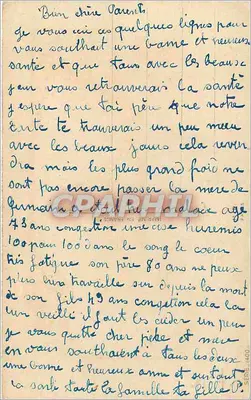 Bien chère Parents
Je vous écri ces quelques lignes pour
vous southait une bonne et heureuse
santé et que tous avec les beause
jour vous retrouverais la santé
j'espère que toi père que notre
carte te trouverais un peu mieu
avec les beaux jours cela revien
dra mais les plus grand froid ne
sont pas encore passer la mère de
Germain a été malade age
73 ans congestion une crise
100 pour 100 dans le sang le coeur
très fatigue son père 80 ans ne peux
plus rien travaille depuis la mort
de son fils 49 ans congestion cela la
bien veille il faut les aider un peu
je vous quitte cher père et mère
en vous southaient à tous les deux
une bonne et heureux anne et surtout
la santé toute la famille ta fille
CPAPHIL